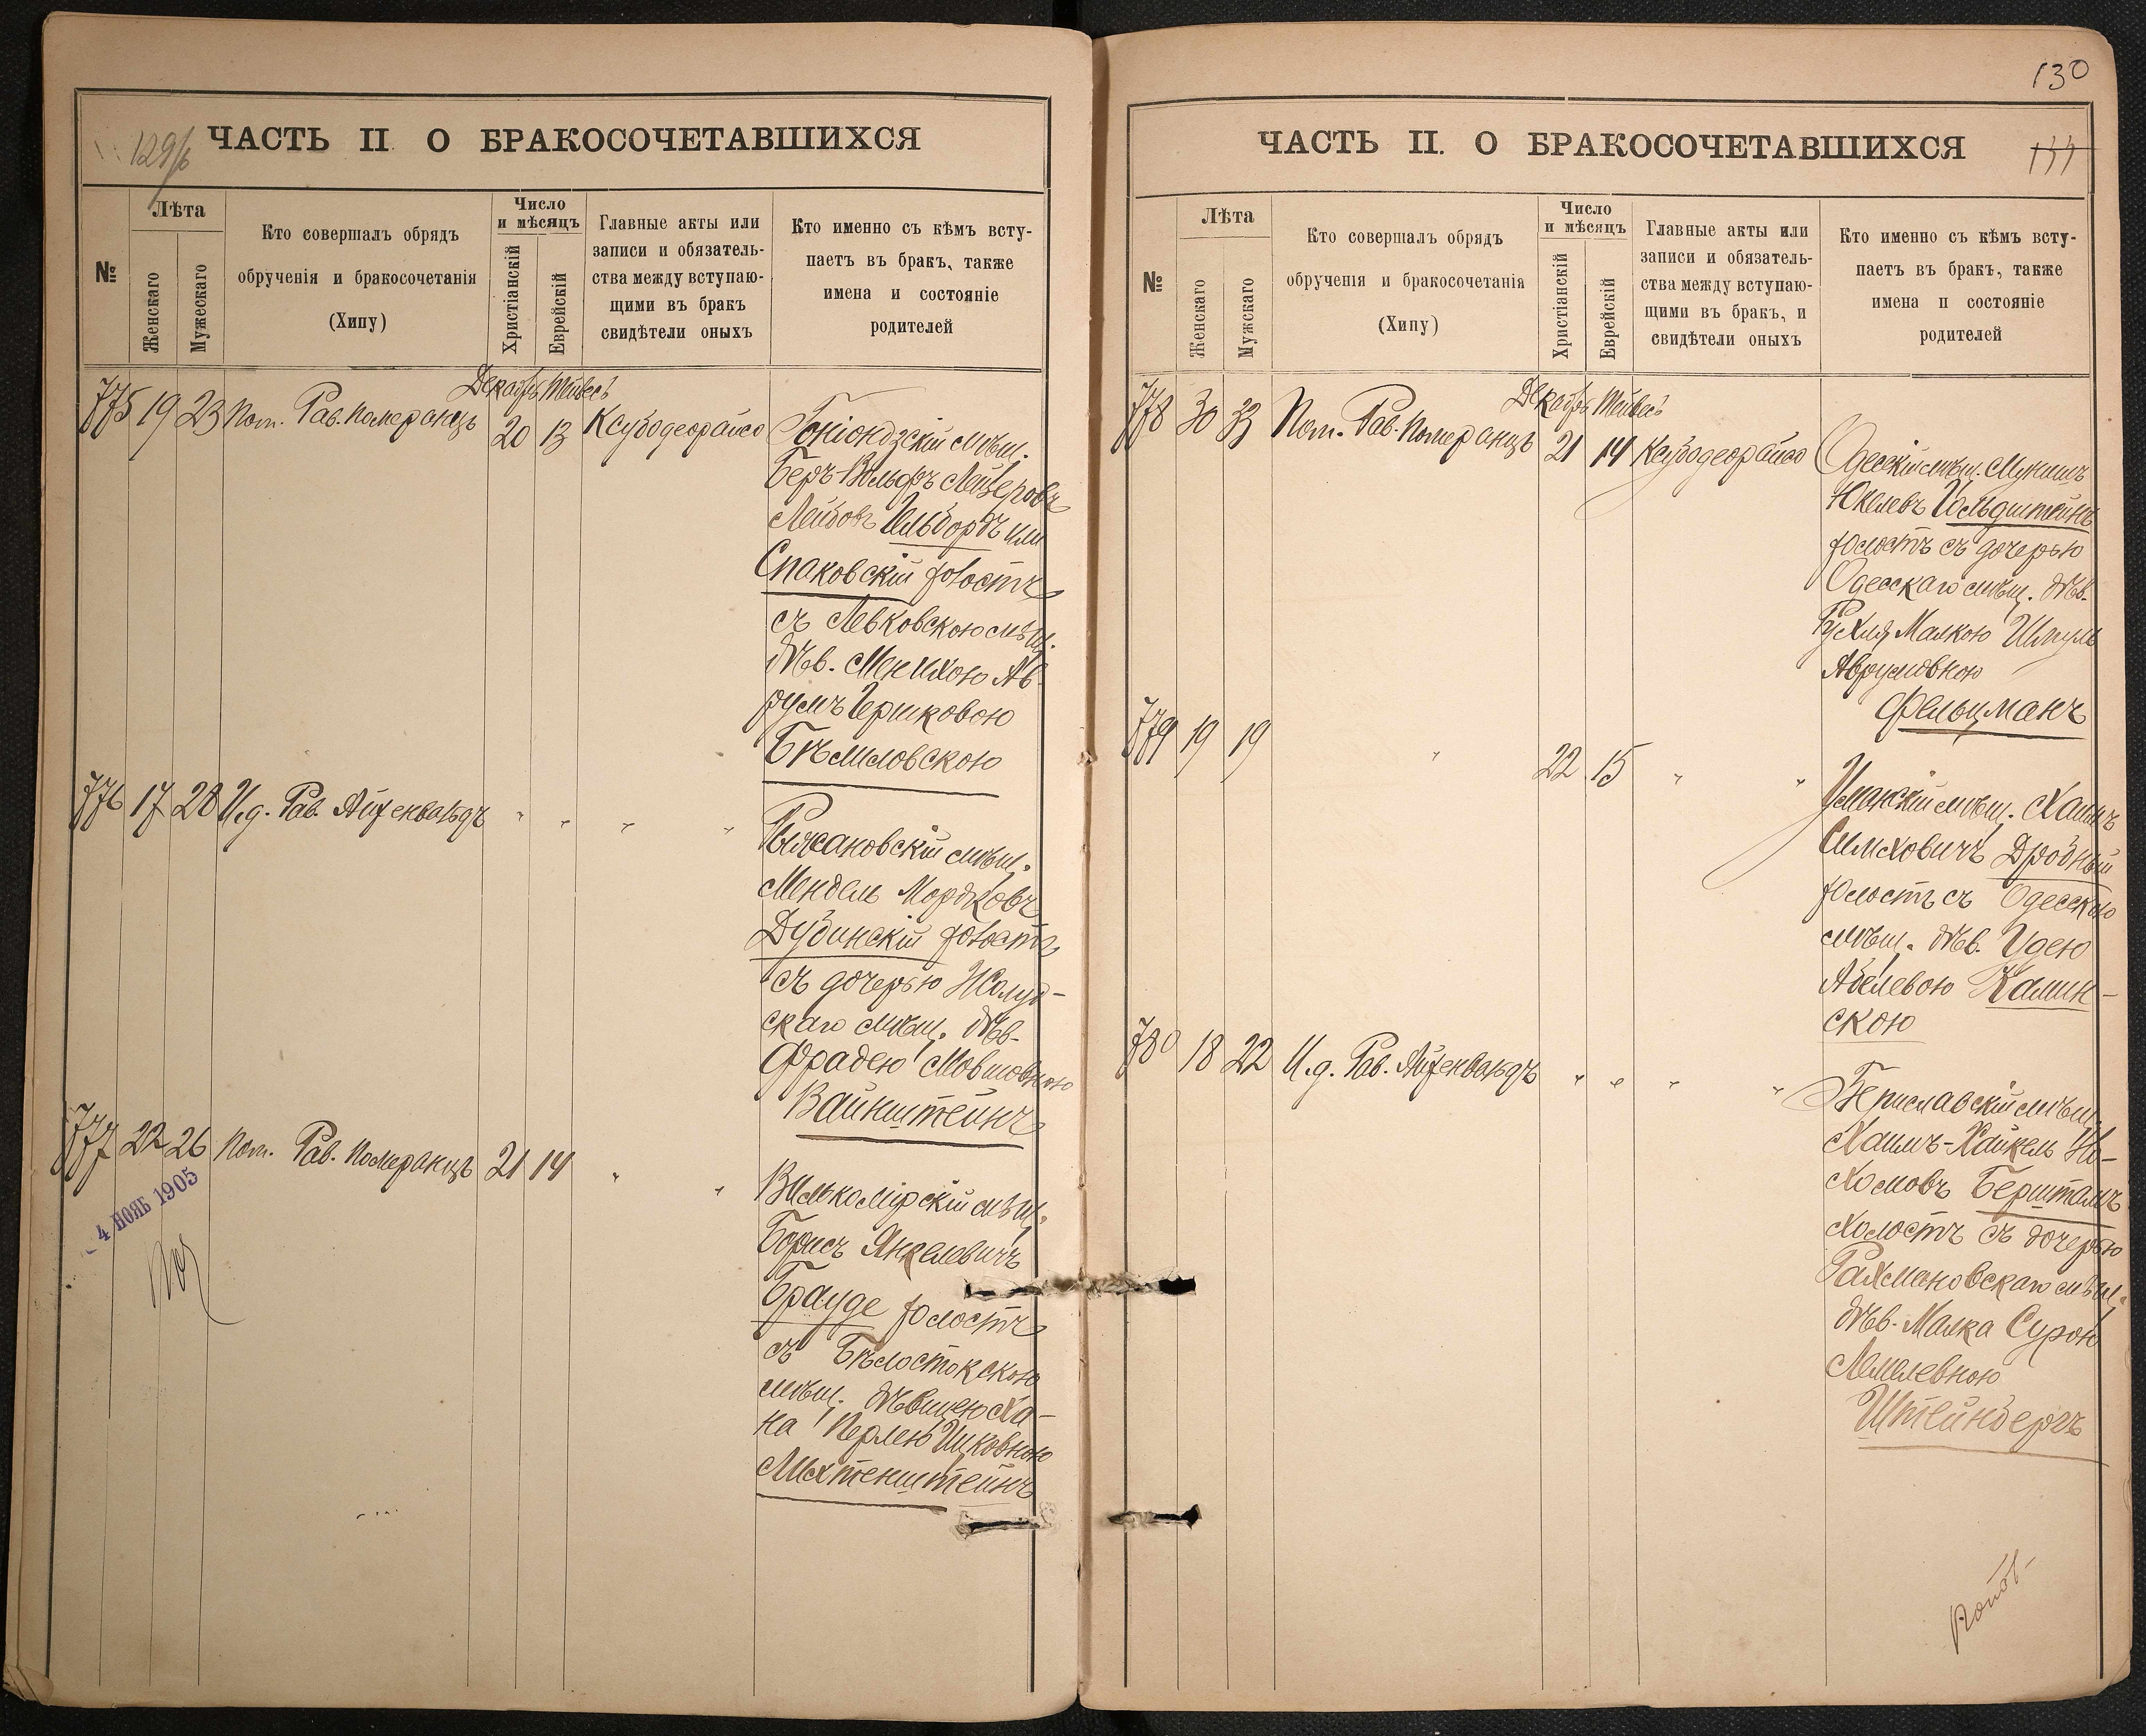 129/б
ЧАСТЬ II О БРАКОСОЧЕТАВШИХСЯ
№
Лѣта
Женскаго
Мужескаго
Кто совершалъ обрядъ
обрученія и бракосочетанія
(Хипу)
Число
и мѣсяцъ
Христіанскій
Еврейскій
Главные акты или
записи и обязатель-
ства между вступаю-
щими въ бракъ
свидѣтели оныхъ
Кто именно съ кѣмъ всту-
паетъ въ бракъ, также
имена и состояніе
родителей
Декабрь Тейвесъ
775 19 23 Пом. Рав. Померанцъ 20 13 Ксубодеорайсо
Гоніондзскій мѣщ.
Беръ-Вольфъ Лейзеровъ
Лейбовъ Гельбордъ или
Спаковскій холостъ
съ Левковскою мѣщ.
дѣв. Менихою Ав-
румъ Гершковою
Бѣлиловскою
776 17 28 И.д. Рав. Айзенвальдъ " " " "
мѣщ.
Мендель Мордковъ
Дубинскій холостъ
съ дочерью Жолуд-
скаго мѣщ. дѣв.
Фрадею Мовшовною
Вайнштейнъ
777 22 26 Пом. Рав. Померанцъ 21 14 " "
Вилькомірскій мѣщ.
Борисъ Янкелевичъ
Брауде холостъ
съ Бѣлостокскою
мѣщ. дѣвицею Ха-
на Перлею Ицковною
Лихтенштейнъ
4 НОЯБ 1905
130
ЧАСТЬ II. О БРАКОСОЧЕТАВШИХСЯ
№
Лѣта
Женскаго
Мужскаго
Кто совершалъ обрядъ
обрученія и бракосочетанія
(Хипу)
Число
и мѣсяцъ
Христіанскій
Еврейскій
Главные акты или
записи и обязатель-
ства между вступаю-
щими въ бракъ, и
свидѣтели оныхъ
Кто именно съ кѣмъ всту-
паетъ въ бракъ, также
имена и состояніе
родителей
Декабрь Тейвесъ
778 30 33 Пом. Рав. Померанцъ 21 14 Ксубодеорайсо
Одесскій мѣщ.
Юкелевъ Гольдштейнъ
холостъ съ дочерью
Одесскаго мѣщ. дѣв.
Рухля Малкою Шмуль
Аврумовною
Фельцманъ
779 19 19 " 22 15 " "
Уманскій мѣщ. Хаимъ
Симховичъ Дробный
холостъ съ Одесскою
мѣщ. дѣв. Удею
Абелевою Камин-
скою
780 18 22 И.д. Рав. Айзенвальдъ " " " "
Бериславскій мѣщ.
Хаимъ-Хайкель Не-
хомовъ Берштамъ
холостъ съ дочерью
Рахмановскаго мѣщ.
дѣв. Малка Сурою
Лемелевною
Штейнбергъ